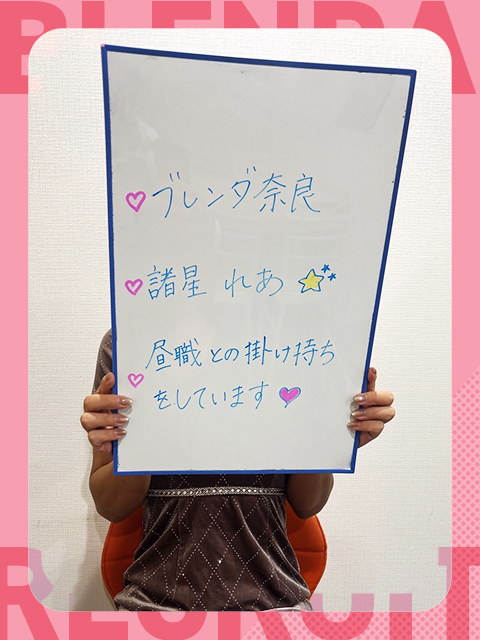 BLENDA
ブレンダ奈良
諸星 れあ
昼職との掛け持ち
をしています
RECRUIT